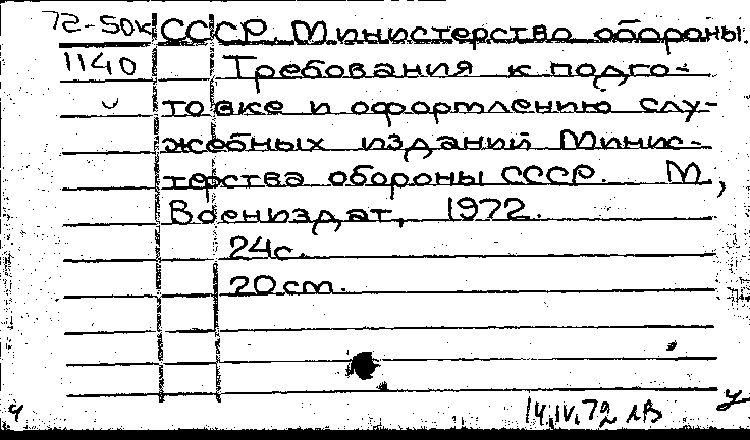 72-50к СССР. Министерство обороны.
1140 Требования к подго-
товке и офортлению слу-
жебных изданий Минис-
терства обороны СССР. М.,
Воениздат, 1972.
24с.
20см.
14.IV.72